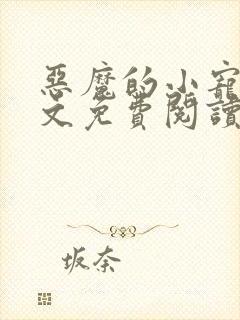 惡魔的小寵
文免費閱讀
坂奈